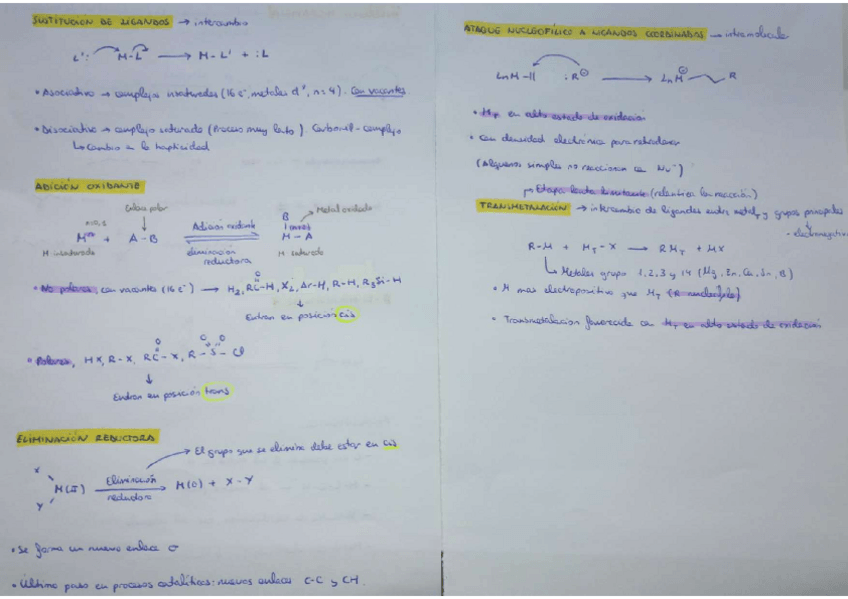 SUSTITUCIÓN DE LIGANDOS → intercambio
L': M-L → M-L' + :L
• Asociativo → complejos insaturados (16 e⁻, metales d⁸, n=4). Con vacantes.
• Disociativo → complejo saturado (Proceso muy lento). Carbonil-complejo
↳ Cambio en la hapticidad
ADICIÓN OXIDANTE
Enlace polar
Metal oxidado
M + A-B
Adición oxidante
eliminación reductora
B
M-A
M insaturado
M saturado
• No polares, con vacantes (16 e⁻) → H₂, RC-H, X₂, Ar-H, R-H, R₃Si-H
O
↓
Entran en posición cis
• Polares, HX, R-X, RC-X, R-S-Cl
O O O
↓
Entran en posición trans
ELIMINACIÓN REDUCTORA
El grupo que se elimina debe estar en cis
X
M(II) Eliminación reductora → M(0) + X-Y
Y
• Se forma un nuevo enlace σ
• Último paso en procesos catalíticos: nuevos enlaces C-C y CH.
ATAQUE NUCLEOFÍLICO A LIGANDOS COORDINADOS → intramolecular
LnM-|| :R⊖ → LnM⊖ R
• M_T en alto estado de oxidación
• Con densidad electrónica para retrodonar
(Alquenos simples no reaccionan con Nu⁻)
↱ Etapa lenta limitante (relentiza la reacción)
TRANSMETALACIÓN → intercambio de ligandos entre metal_T y grupos principales
- electronegativo
R-M + M_T-X → RM_T + MX
↳ Metales grupo 1, 2, 3 y 14 (Mg, Zn, Cu, Sn, B)
• M más electropositivo que M_T (R nucleófilo)
• Transmetalación favorecida con M_T en alto estado de oxidación